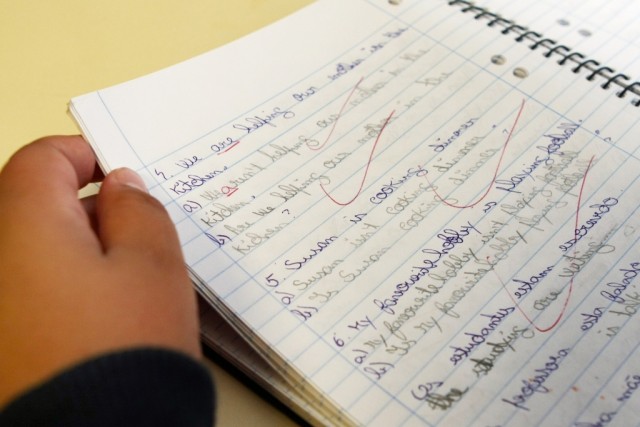 4. We are helping our mother in the
Kitchen.
a) We aren't helping our mother in the
Kitchen.
b) Are we helping our mother in the
Kitchen?
5. Susan is cooking dinner.
a) Susan isn't cooking dinner.
b) Is Susan cooking dinner?
6. My favourite hobby is playing football.
a) My favourite hobby isn't playing football
b) Is my favourite hobby playing football
Os estudantes estam escrevendo
the studying are
professora está falando
is